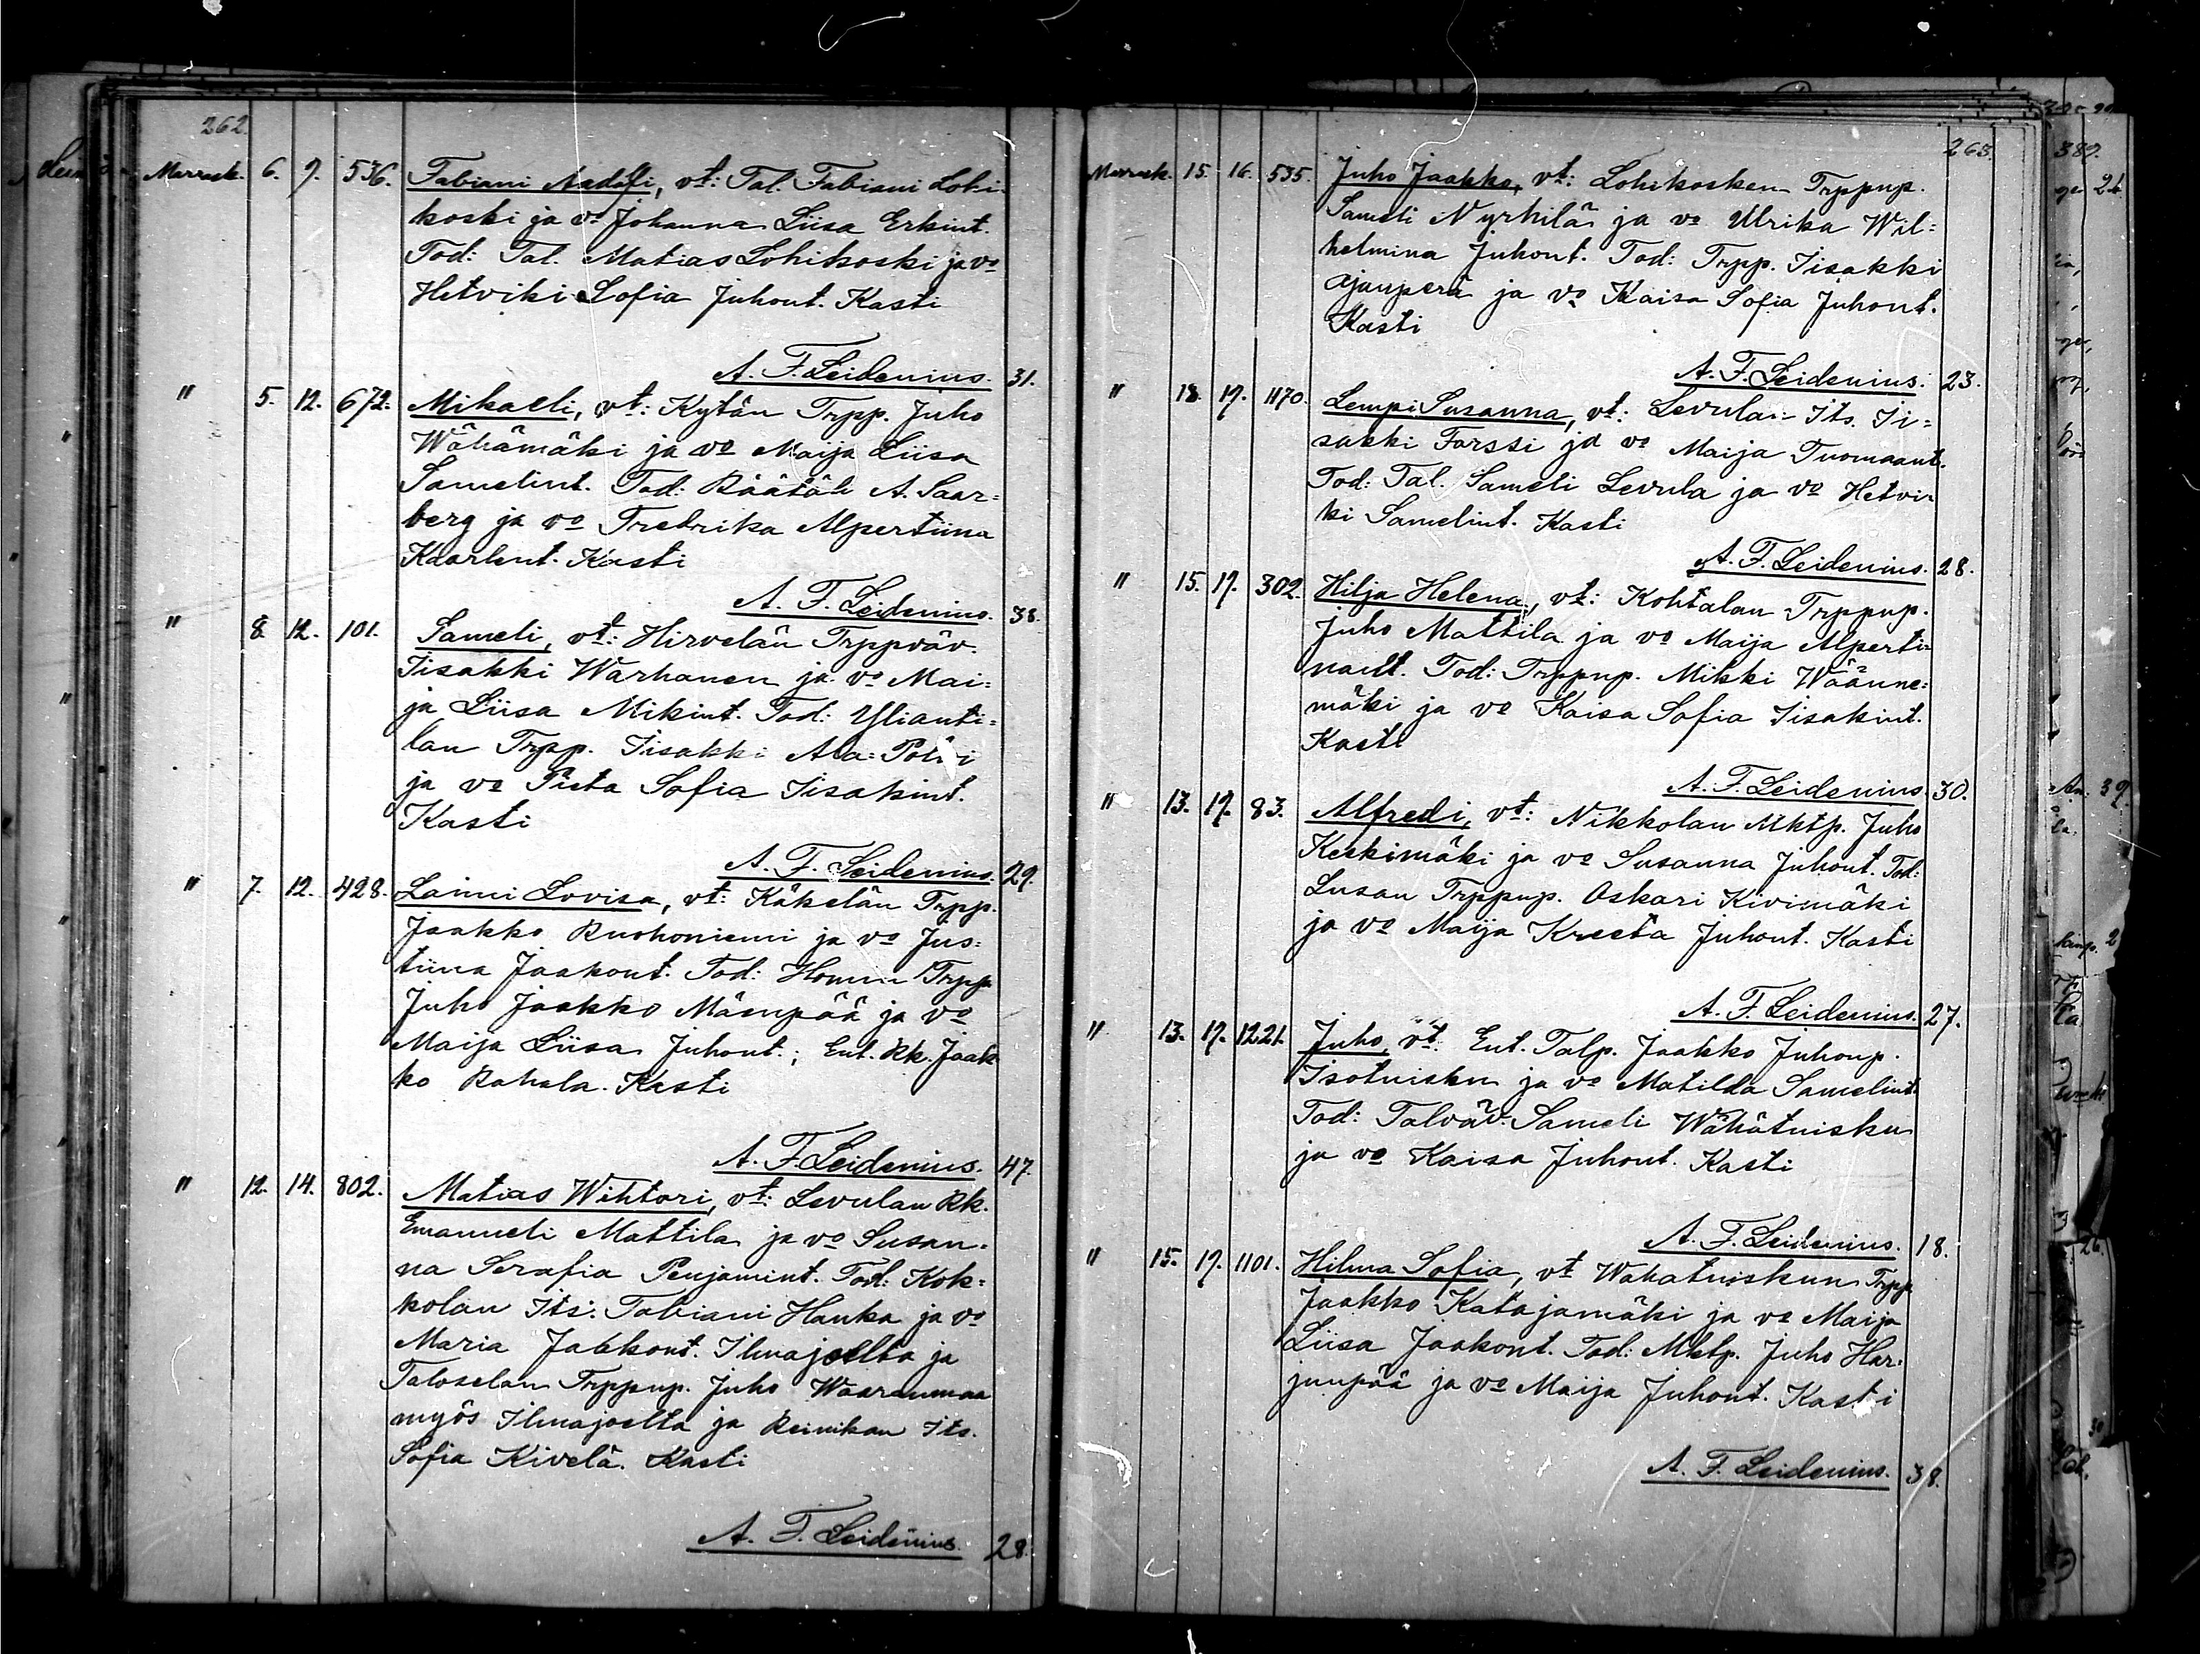 262.
Marrask. 6. 9. 536. Fabiani Aadolfi, vt: Tal. Fabiani Lohi-
koski ja vo Johanna Liisa Erkint.
Tod: Tal. Matias Lohikoski ja vo
Hetviki Sofia Juhont. Kasti
A. F. Leidenius. 31.
" 5. 12. 672. Mikaeli, vt: Kytän Trpp. Juho
Wähämäki ja vo Maija Liisa
Samelint. Tod: Räätäli A. Saar=
berg ja vo Fredrika Alpertiina
Kaarlent. Kasti
A. F. Leidenius. 38.
" 8. 12. 101. Sameli, vt: Hirvelän Trppväv.
Iisakki Warhanen ja vo Mai=
ja Liisa Mikint. Tod: Ylianti=
lan Trpp. Iisakki
ja vo Sofia Iisakint.
Kasti
A. F. Leidenius. 29.
" 7. 12. 428. Laimi Lovisa, vt: Käkelän Trpp.
Jaakko Ruohoniemi ja vo Jus=
tiina Jaakont. Tod: Trpp.
Juho Jaakko Mäenpää ja vo
Maija Liisa Juhont.; Ent. Rk. Jaak
ko Rahola. Kasti
A. F. Leidenius. 47.
" 12. 14. 802. Matias Wihtori, vt: Levulan Rk.
Emanueli Mattila ja vo Susan=
na Serafia Penjamint. Tod: Kok=
kolan Its. Fabiani Hanka ja vo
Maria Jaakont. Ilmajoelta ja
Taloselan Trppup. Juho Waaranmaa
myös Ilmajoelta ja Reinikan Its.
Sofia Kivelä. Kasti
A. F. Leidenius. 28.
263.
Marrask. 15. 16. 535. Juho Jaakko, vt: Lohikosken Trppup.
Sameli Nyrhilä ja vo Ulrika Wil=
helmina Juhont. Tod: Trpp. Iisakki
Ojanperä ja vo Kaisa Sofia Juhont.
Kasti
A. F. Leidenius. 23.
" 18. 19. 1170. Lempi Susanna, vt: Levulan Its. Ii=
sakki Forssi ja vo Maija Tuomaant.
Tod: Tal. Sameli Levula ja vo Hetvi-
ki Samelint. Kasti
A. F. Leidenius. 28.
" 15. 19. 302. Hilja Helena, vt: Kohtalan Trppup.
Juho Mattila ja vo Maija Alperti-
Tod: Trppup. Mikki Wäänne=
mäki ja vo Kaisa Sofia Iisakint.
Kasti
A. F. Leidenius. 30.
" 13. 19. 83. Alfredi, vt: Nikkolan Mktp. Juho
Keskimäki ja vo Susanna Juhont. Tod:
Lusan Trppup. Oskari Kivimäki
ja vo Maija Kreeta Juhont. Kasti
A. F. Leidenius. 27.
" 13. 19. 1221. Juho, vt: Ent. Talp. Jaakko Juhonp.
Isotuisku ja vo Matilda Samelint.
Tod: Talväv. Sameli Wähätuisku
ja vo Kaisa Juhont. Kasti
A. F. Leidenius. 18.
" 15. 19. 1101. Hilma Sofia, vt Wähätuiskun Trpp.
Jaakko Katajamäki ja vo Maija
Liisa Jaakont. Tod: Mktp. Juho Har=
junpää ja vo Maija Juhont. Kasti
A. F. Leidenius. 38.